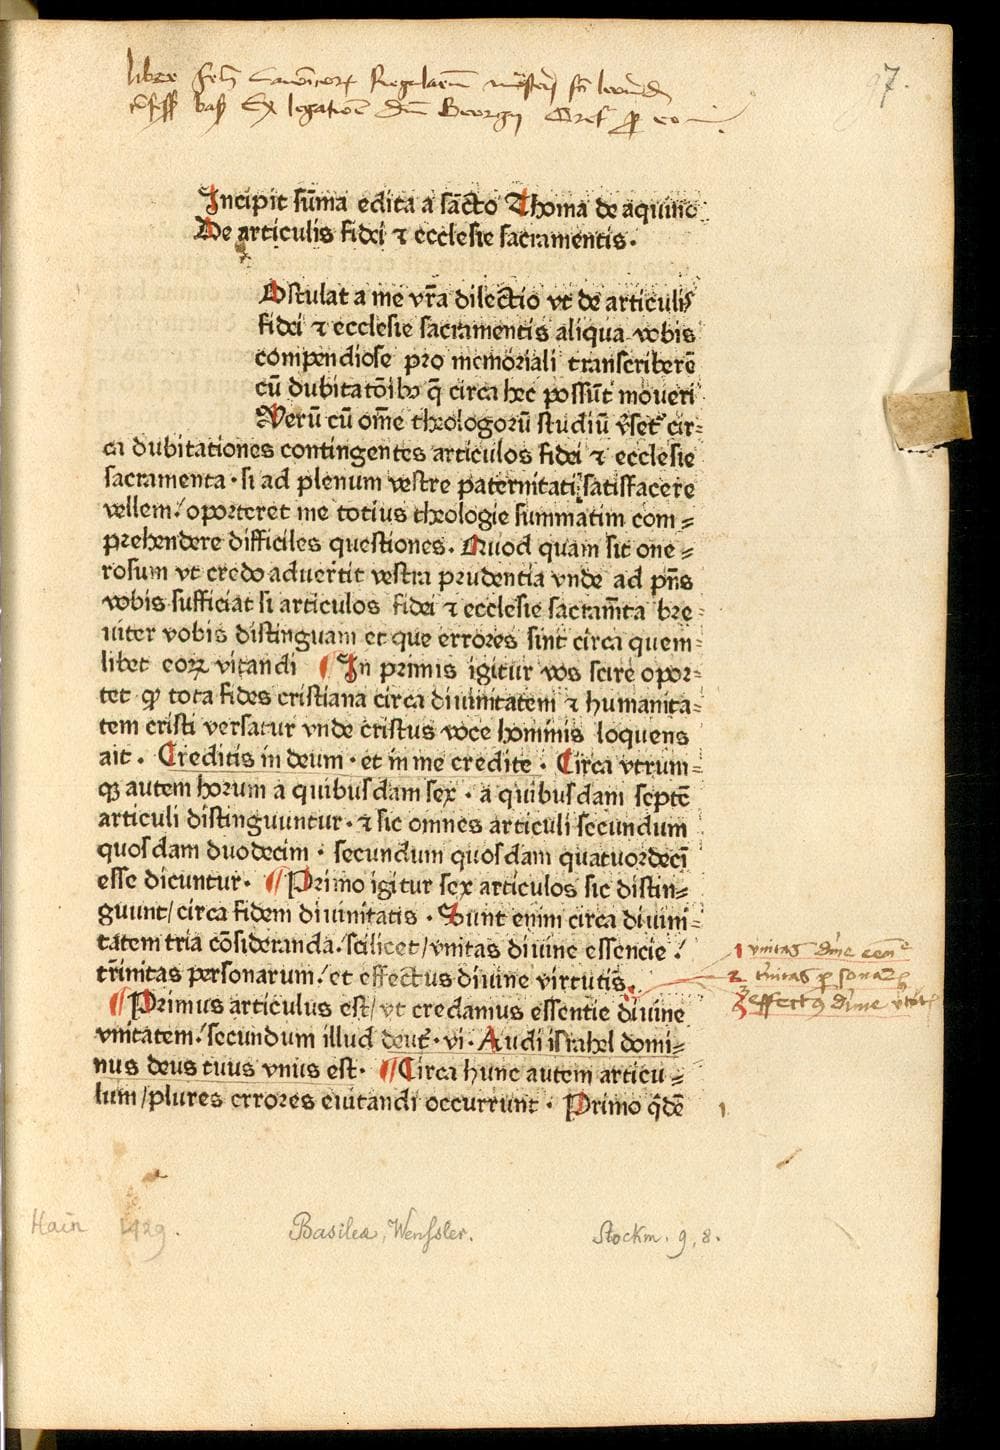 97.
liber
Ex legatione
Incipit sūma edita a sācto Thoma de aquino
De articulis fidei ⁊ ecclesie sacramentis.
Ostulat a me vr̄a dilectio vt de articulis
fidei ⁊ ecclesie sacramentis aliqua vobis
compendiose pro memoriali transcriberē
cū dubitatōibꝰ q̄ circa hec possūt moueri
Verū cū om̄e theologorū studiū v̄set᷑ cir⸗
ca dubitationes contingentes articulos fidei ⁊ ecclesie
sacramenta · si ad plenum vestre paternitati satisfacere
vellem / oporteret me totius theologie summatim com⸗
prehendere difficiles questiones. Quod quam sit one⸗
rosum vt credo aduertit vestra prudentia vnde ad pn̄s
vobis sufficiat si articulos fidei ⁊ ecclesie sacram̄ta bre⸗
uiter vobis distinguam et que errores sint circa quem⸗
libet eoꝝ vitandi ¶ In primis igitur vos scire opor⸗
tet ꝙ tota fides cristiana circa diuinitatem ⁊ humanita⸗
tem cristi versatur vnde cristus voce hominis loquens
ait . Creditis in deum · et in me credite . Circa vtrum⸗
qꝫ autem horum a quibusdam sex · a quibusdam septē
articuli distinguuntur · ⁊ sic omnes articuli secundum
quosdam duodecim · secundum quosdam quatuordecī
esse dicuntur. ¶ Primo igitur sex articulos sic distin⸗
guunt / circa fidem diuinitatis . Sunt enim circa diuini⸗
tatem tria cōsideranda / scilicet / vnitas diuine essencie /
tr̄initas personarum / et effectus diuine virtutis.
¶ Primus articulus est / vt credamus essentie diuine
vnitatem / secundum illud deut᷑ · vi · Audi israhel domi⸗
nus deus tuus vnus est. ¶ Circa hunc autem articu⸗
lum / plures errores euitandi occurrunt . Primo qͥdē
1 vnitas diīe eēn
2 t̄nitas ꝑsonaꝝ
3 effectꝰ diīe
1
Hain 1429.
Basileæ, Wenssler.
Stockm. 9, 8.